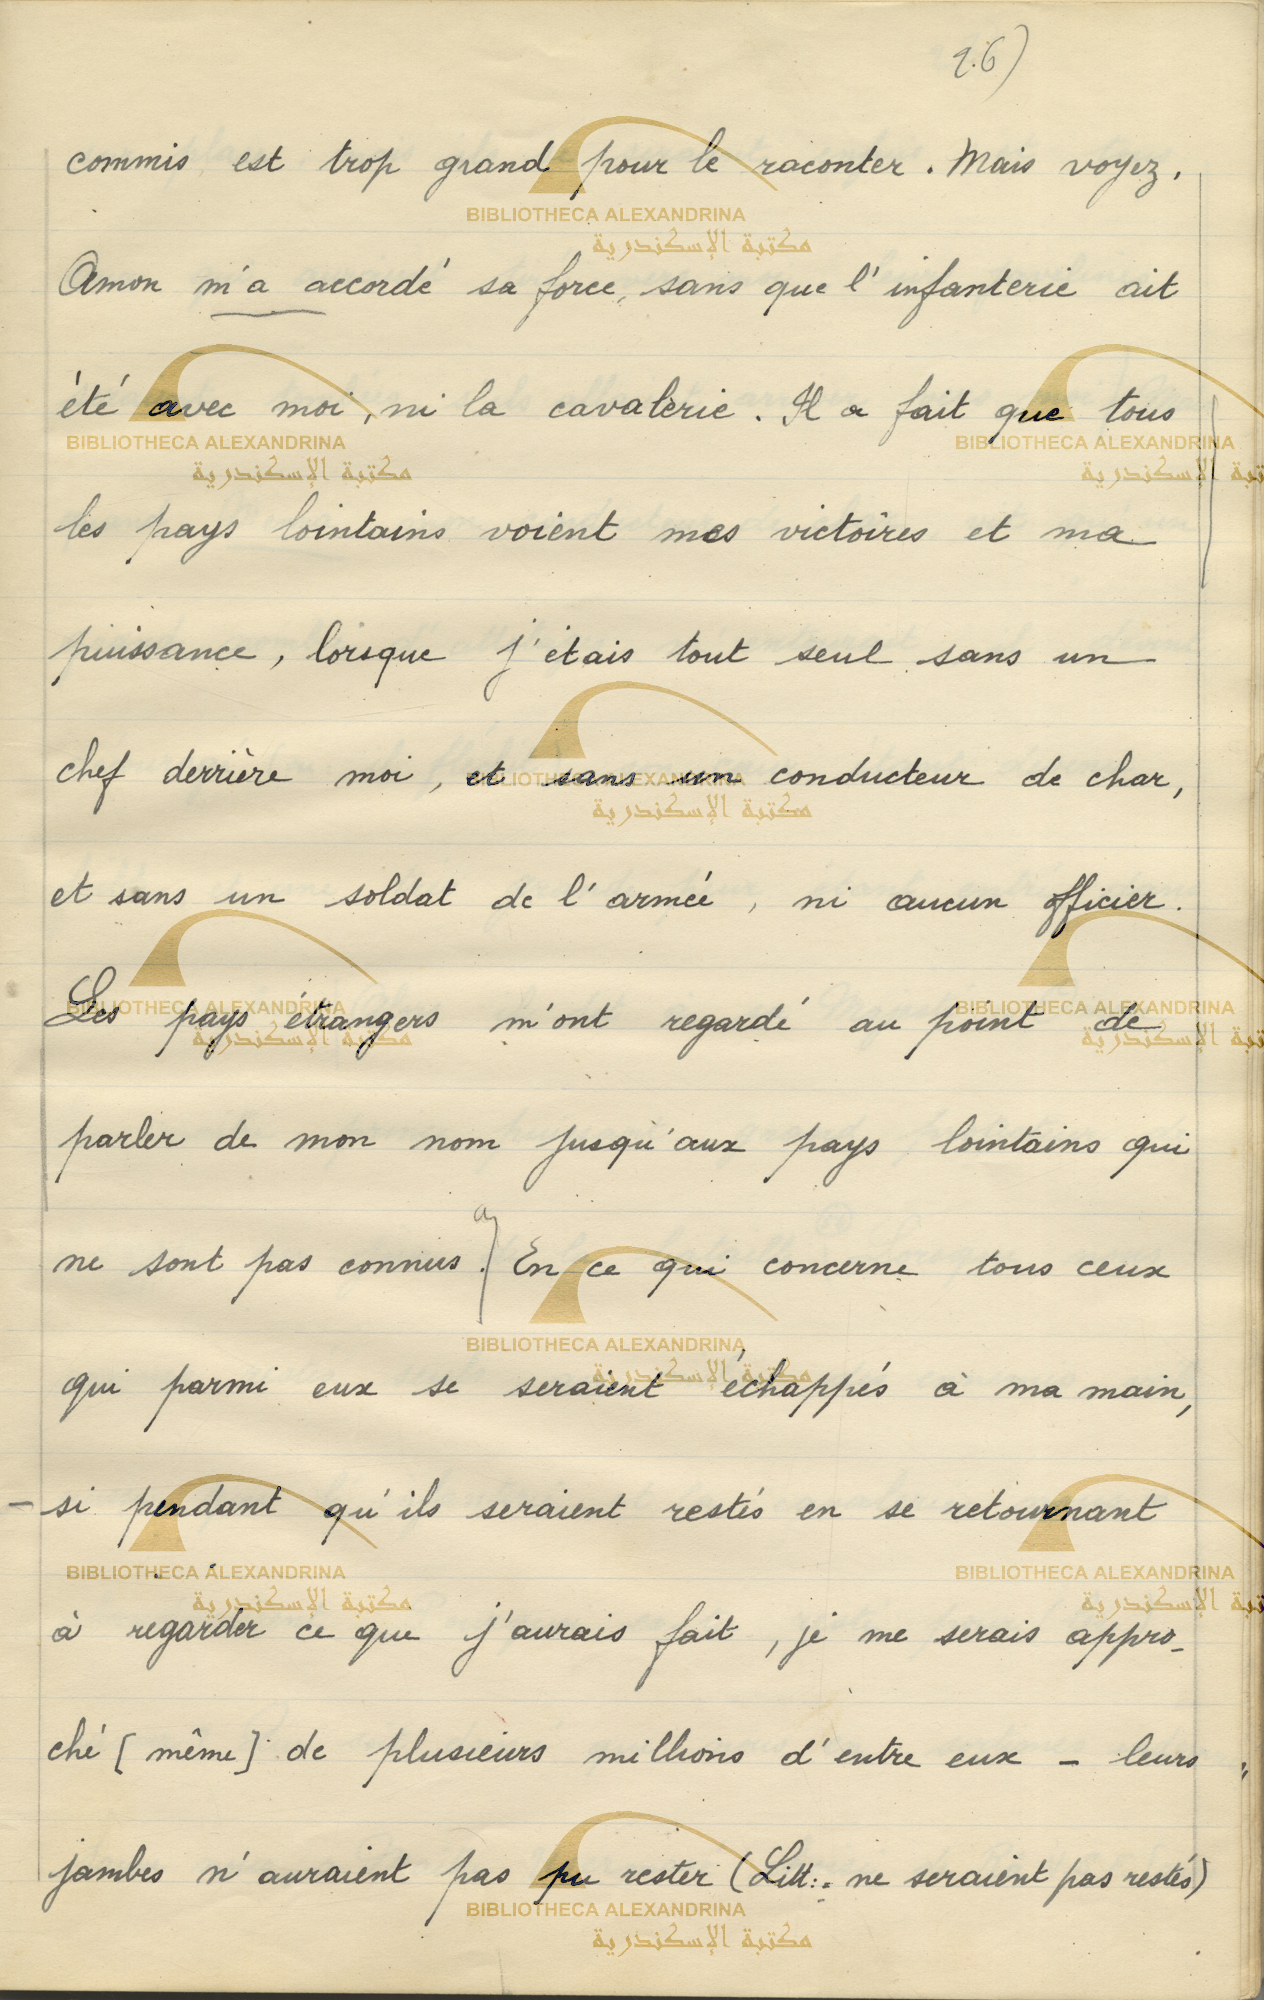 26)
commis est trop grand pour le raconter. Mais voyez.
Amon m'a accordé sa force, sans que l'infanterie ait
été avec moi, ni la cavalerie. Il a fait que tous
les pays lointains voient mes victoires et ma
puissance, lorsque j'étais tout seul sans un
chef derrière moi, et sans un conducteur de char,
et sans un soldat de l'armée, ni aucun officier.
Les pays étrangers m'ont regardé au point de
parler de mon nom jusqu'aux pays lointains qui
ne sont pas connus. En ce qui concerne tous ceux
qui parmi eux se seraient échappés à ma main,
– si pendant qu'ils seraient restés en se retournant
à regarder ce que j'aurais fait, je me serais appro-
ché [même] de plusieurs millions d'entre eux – leurs
jambes n'auraient pas pu rester (Litt: ne seraient pas restés)
BIBLIOTHECA ALEXANDRINA
مكتبة الإسكندرية